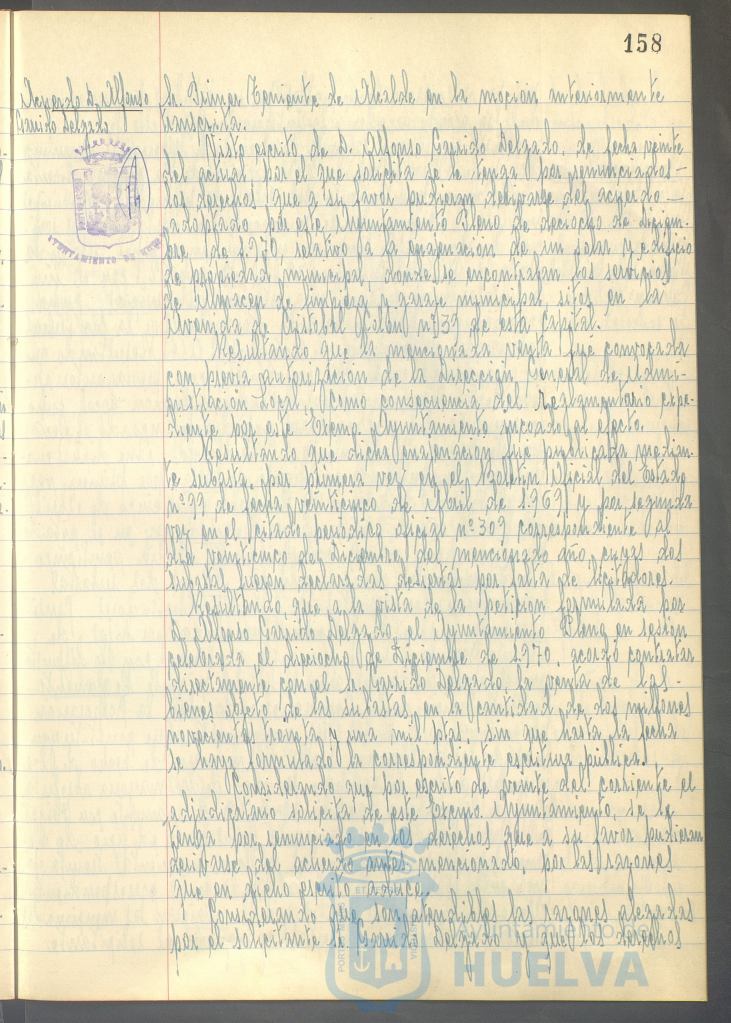 158
Acuerdo D. Alfonso
Garrido Delgado
Sr. Primer Teniente de Alcalde en la moción anteriormente
transcrita.
Visto escrito de D. Alfonso Garrido Delgado, de fecha veinte
del actual, por el que solicita se le tenga por renunciados
los derechos que a su favor pudieran derivarse del acuerdo
adoptado por este Ayuntamiento Pleno de dieciocho de Diciem-
bre de 1.970, relativo a la enagenación de un solar y edificio
de propiedad municipal, donde se encontraban los servicios
de Almacén de limpieza y garaje municipal, sitos en la
Avenida de Cristobal Colón nº 39 de esta Capital.
Resultando que la mencionada venta fué convocada
con previa autorización de la Dirección General de Admi-
nistración Local, como consecuencia del reglamentario expe-
diente por este Excmo. Ayuntamiento incoado al efecto.
Resultando que dicha enagenación fue publicada median-
te subasta, por primera vez en el Boletín Oficial del Estado
nº 99 de fecha veinticinco de Abril de 1.969 y por segunda
vez en el citado periódico oficial nº 309 correspondiente al
día veinticinco de Diciembre del mencionado año, cuyas dos
subastas fueron declaradas desiertas por falta de licitadores.
Resultando, que a la vista de la petición formulada por
D. Alfonso Garrido Delgado, el Ayuntamiento Pleno en sesión
celebrada el dieciocho de Diciembre de 1.970, acordó contratar
directamente con el Sr. Garrido Delgado, la venta de los
bienes objeto de las subastas, en la cantidad de dos millones
novecientas treinta y una mil ptas, sin que hasta la fecha
se haya formulado la correspondiente escritura pública.
Considerando que por escrito de veinte del corriente el
adjudicatario solicita de este Excmo. Ayuntamiento, se le
tenga por renunciado en los derechos que a su favor pudieran
derivarse del acuerdo antes mencionado, por las razones
que en dicho escrito aduce.
Considerando que son atendibles las razones alegadas
por el solicitante Sr. Garrido Delgado y que los derechos
AYUNTAMIENTO DE HUELVA
Ayuntamiento de
HUELVA